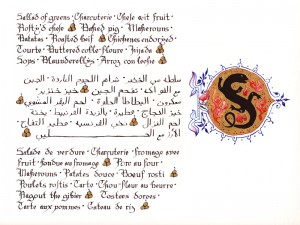 Salled of greens · Charcuterie · Chese wit fruit ·
Rostyd chese · Baked pig · Makerouns ·
Potatas · Roasted beef · Chickenes endorsed ·
Tourte · Buttered colle-floure ·
Sops · Blaunderellys · Arroz con leche
سلطة من الخضر · شرائح اللحم الباردة · الجبن
مع الفواكه · تحميص الجبن · خبز خنزير
معكرون · البطاطا الحلوة · لحم البقر المشوي
خبز الدجاج · فطيرة · بالزبدة القرنبيط · يخنة
لحم الغزال · تحب الفرنسية · فطير التفاح ·
الأرز مع الحليب
Salade de verdure · Charcuterie · fromage avec
fruit · fondue au fromage · Porc au four ·
Makerouns · Patates douces · Boeuf rosti
Poulets rostis · Tarte · Chou-fleur au beurre ·
Ragout the gibier · Tostees dorees ·
Tarte aux pommes · Gateau de riz